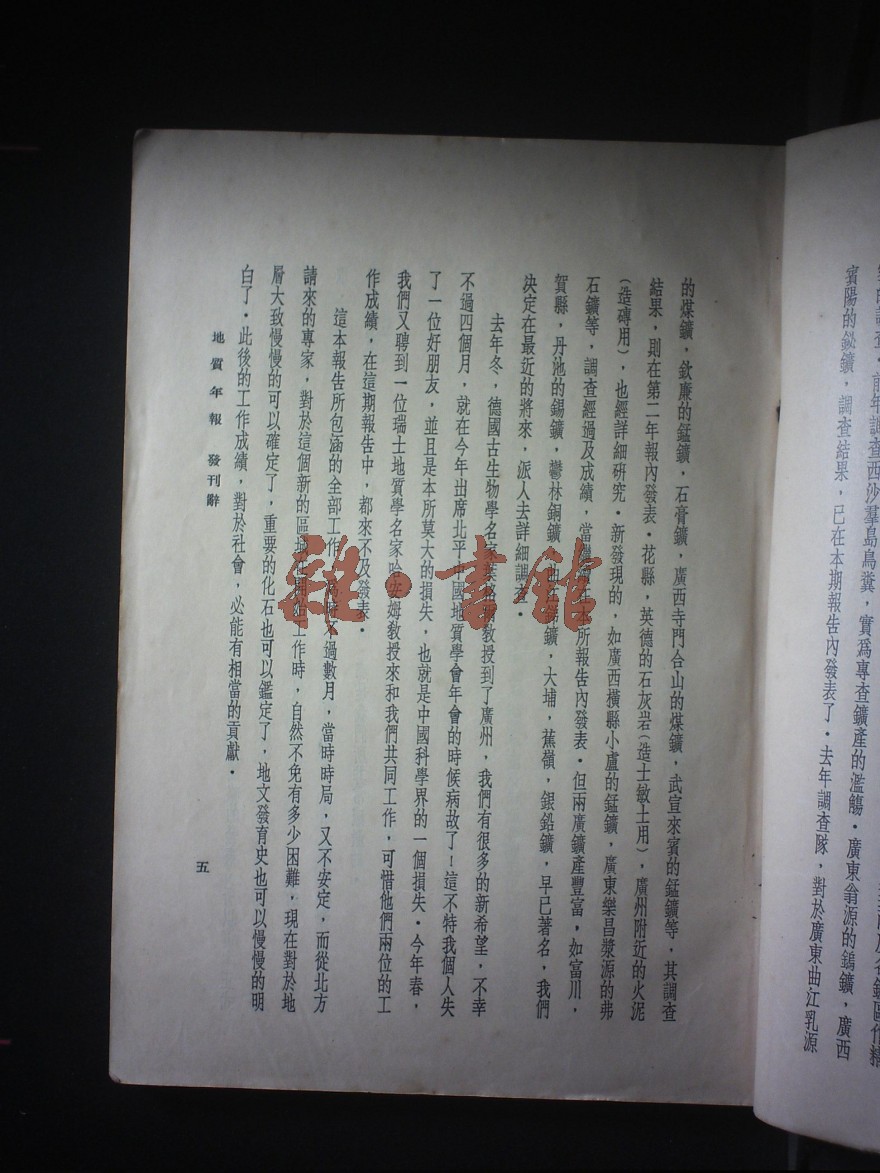 賓陽的鉍鑛，調查結果，已在本期報告內發表了・去年調查隊，對於廣東曲江乳源
的煤鑛，欽廉的錳鑛，石膏鑛，廣西寺門合山的煤鑛，武宣來賓的錳鑛等，其調查
結果，則在第二年報內發表・花縣，英德的石灰岩（造士敏土用），廣州附近的火泥
（造磚用），也經詳細研究・新發現的，如廣西橫縣小盧的錳鑛，廣東樂昌漿源的弗
石鑛等，調查經過及成績，當繼續在本所報告內發表・但兩廣鑛產豐富，如富川，
賀縣，丹池的錫鑛，鬱林銅鑛，曲江銻鑛，大埔，蕉嶺，銀鉛鑛，早已著名，我們
決定在最近的將來，派人去詳細調查・
去年冬，德國古生物學名家葉格爾教授到了廣州，我們有很多的新希望，不幸
不過四個月，就在今年出席北平中國地質學會年會的時候病故了！這不特我個人失
了一位好朋友，並且是本所莫大的損失，也就是中國科學界的一個損失・今年春，
我們又聘到一位瑞士地質學名家哈安姆教授來和我們共同工作，可惜他們兩位的工
作成績，在這期報告中，都來不及發表・
這本報告所包涵的全部工作，為時不過數月，當時時局，又不安定，而從北方
請來的專家，對於這個新的區域在開始工作時，自然不免有多少困難，現在對於地
層大致慢慢的可以確定了，重要的化石也可以鑑定了，地文發育史也可以慢慢的明
白了・此後的工作成績，對於社會，必能有相當的貢獻・
地質年報 發刊辭
五
雜・書館